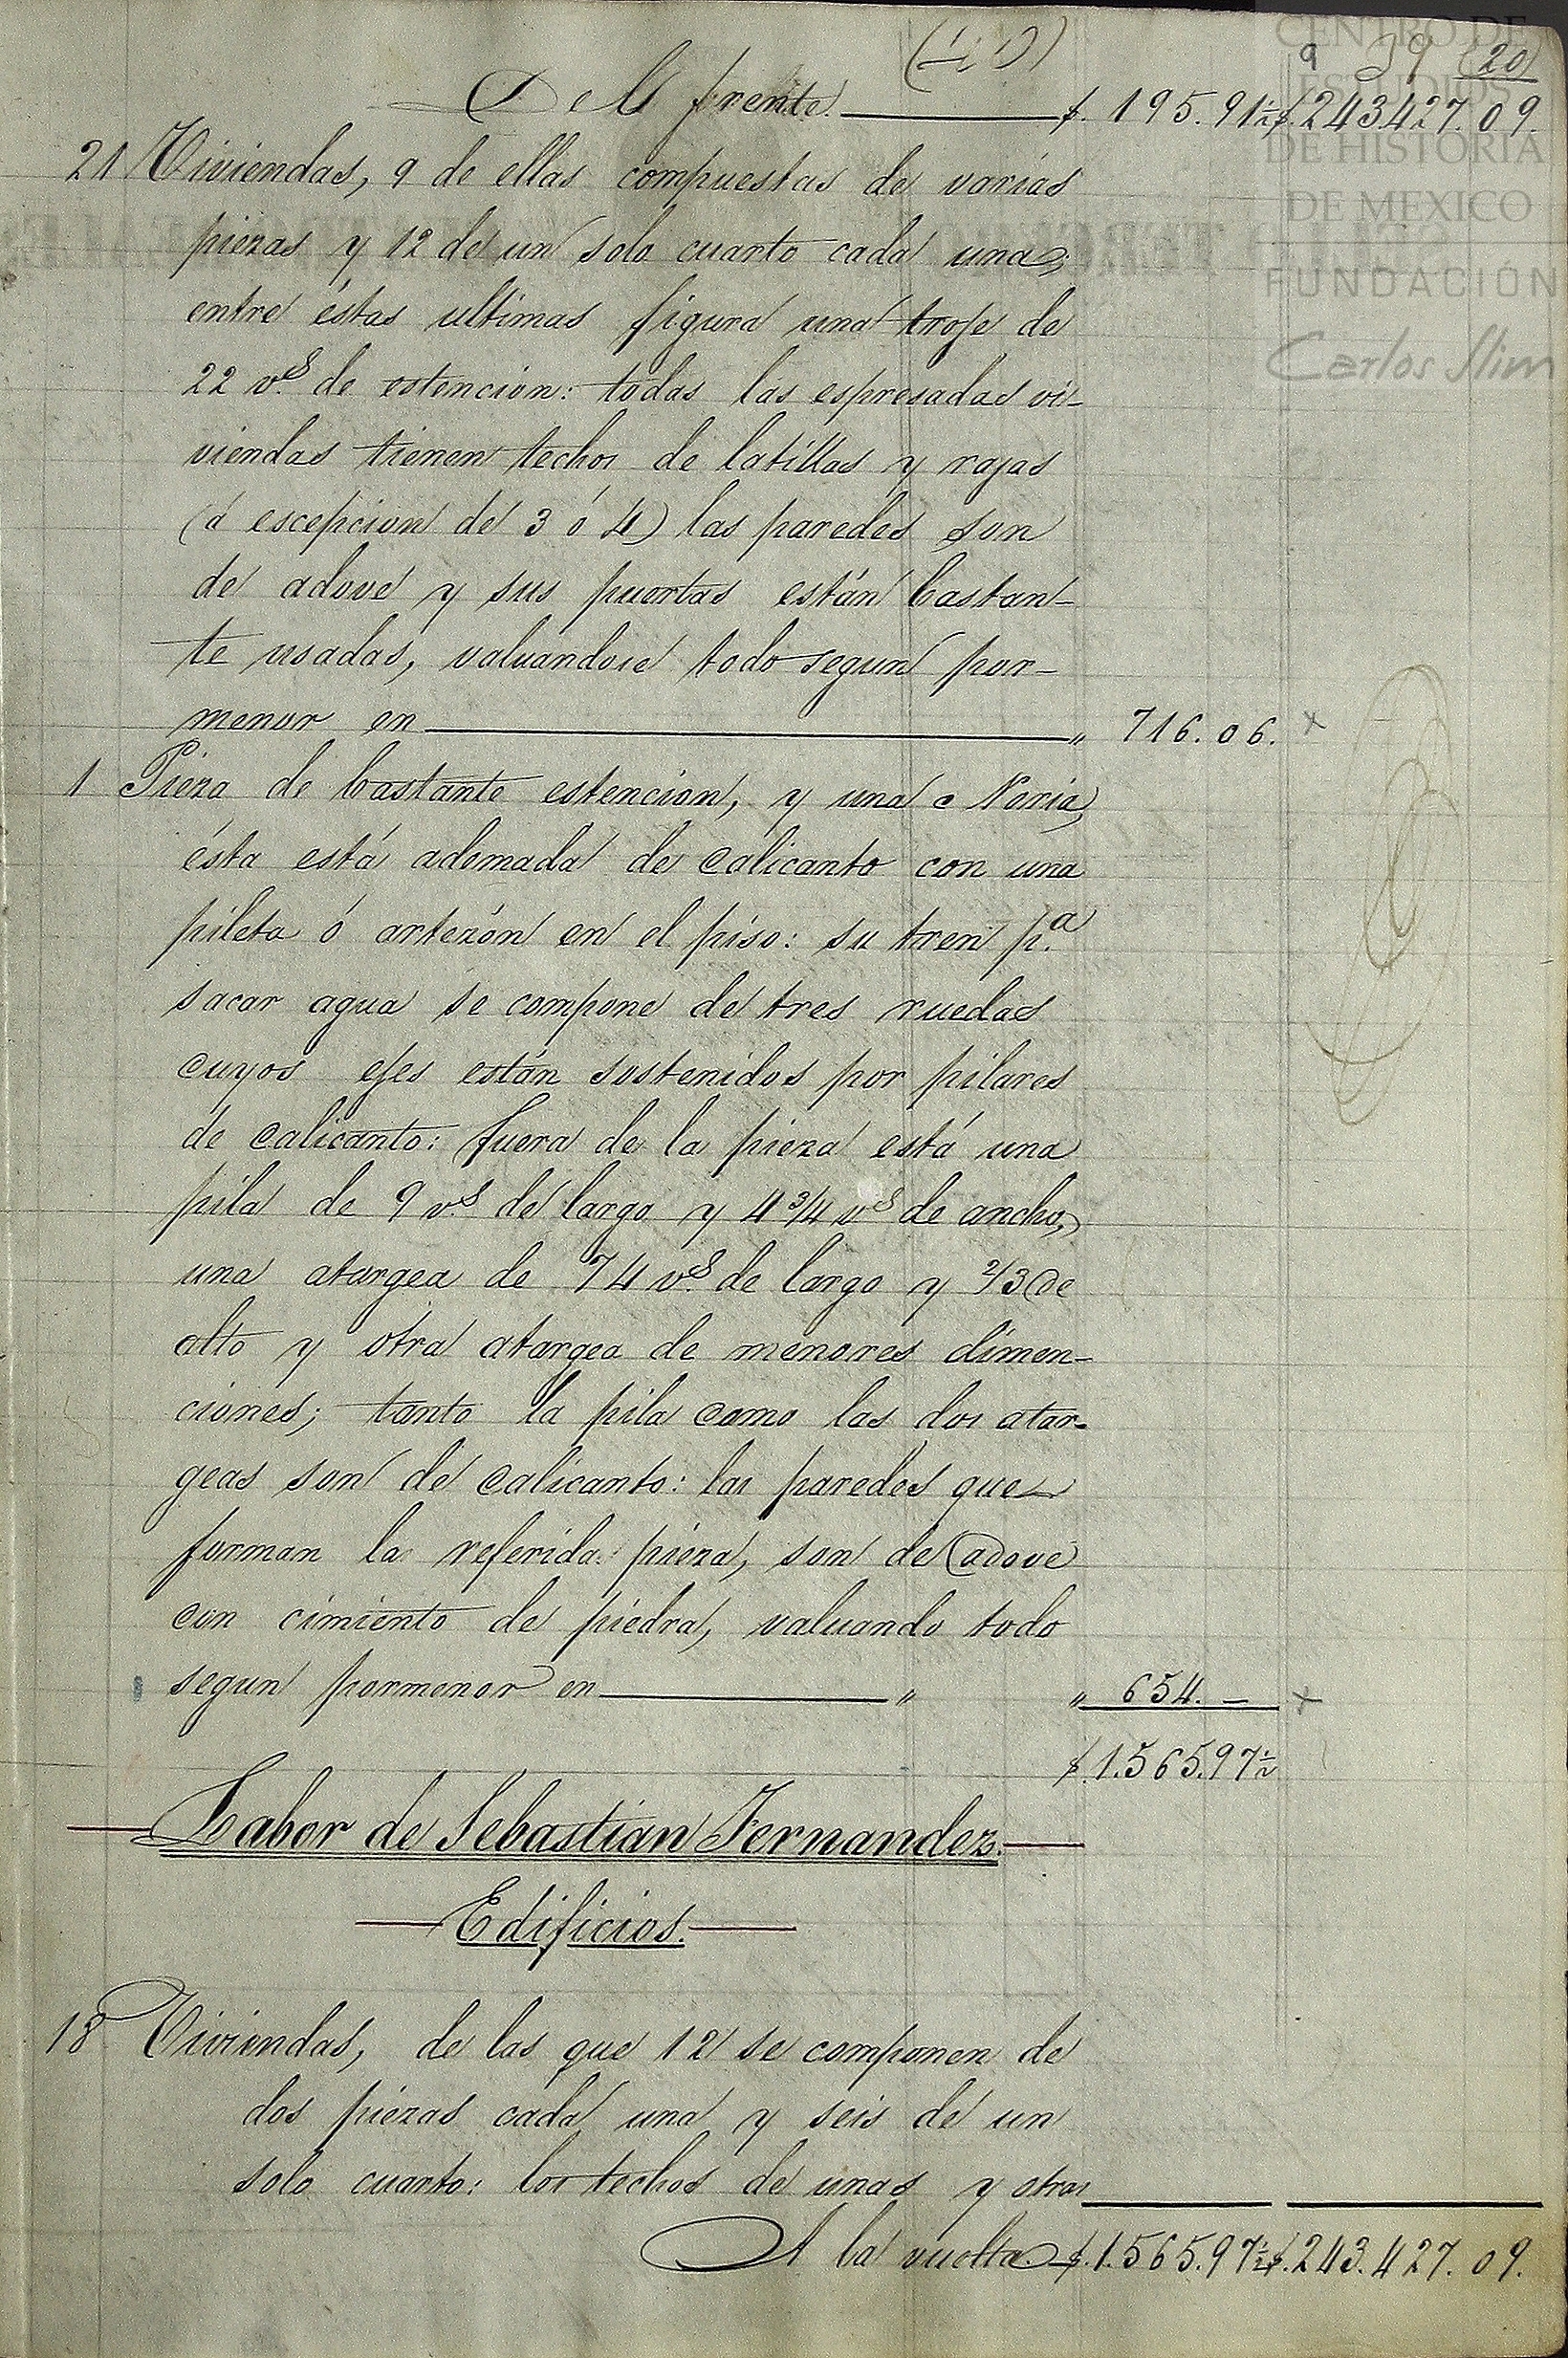 9 39 (20)
Del frente. $. 195.91½ $. 243427.09.
21 Viviendas, 9 de ellas compuestas de varias
piezas y 12 de un solo cuarto cada una;
entre éstas ultimas figura una troje de
22 v.s de estencion: todas las espresadas vi-
viendas tienen techos de latillas y rajas
(á escepcion de 3 ó 4) las paredes son
de adove y sus puertas están bastan-
te usadas, valuandose todo segun por-
menor en " 716.06. x
1 Pieza de bastante estencion, y una Noria,
ésta está ademada de calicanto con una
pileta ó artezón en el piso: su tren p.a
sacar agua se compone de tres ruedas
cuyos ejes están sostenidos por pilares
de calicanto: fuera de la pieza está una
pila de 9 v.s de largo y 4 3/4 v.s de ancho,
una atargea de 74 v.s de largo y 2/3 de
alto y otra atargea de menores dimen-
ciones; tanto la pila como las dos atar-
geas son de calicanto: las paredes que
forman la referida pieza, son de adove
con cimiento de piedra, valuando todo
segun pormenor en " " 654. — x
$. 1.565.97½
Labor de Sebastian Fernandez.
Edificios.
18 Viviendas, de las que 12 se componen de
dos piezas cada una y seis de un
solo cuarto: los techos de unas y otras
A la vuelta $. 1.565.97½ $. 243.427.09.
CENTRO DE
ESTUDIOS
DE HISTORIA
DE MEXICO
FUNDACIÓN
Carlos Slim